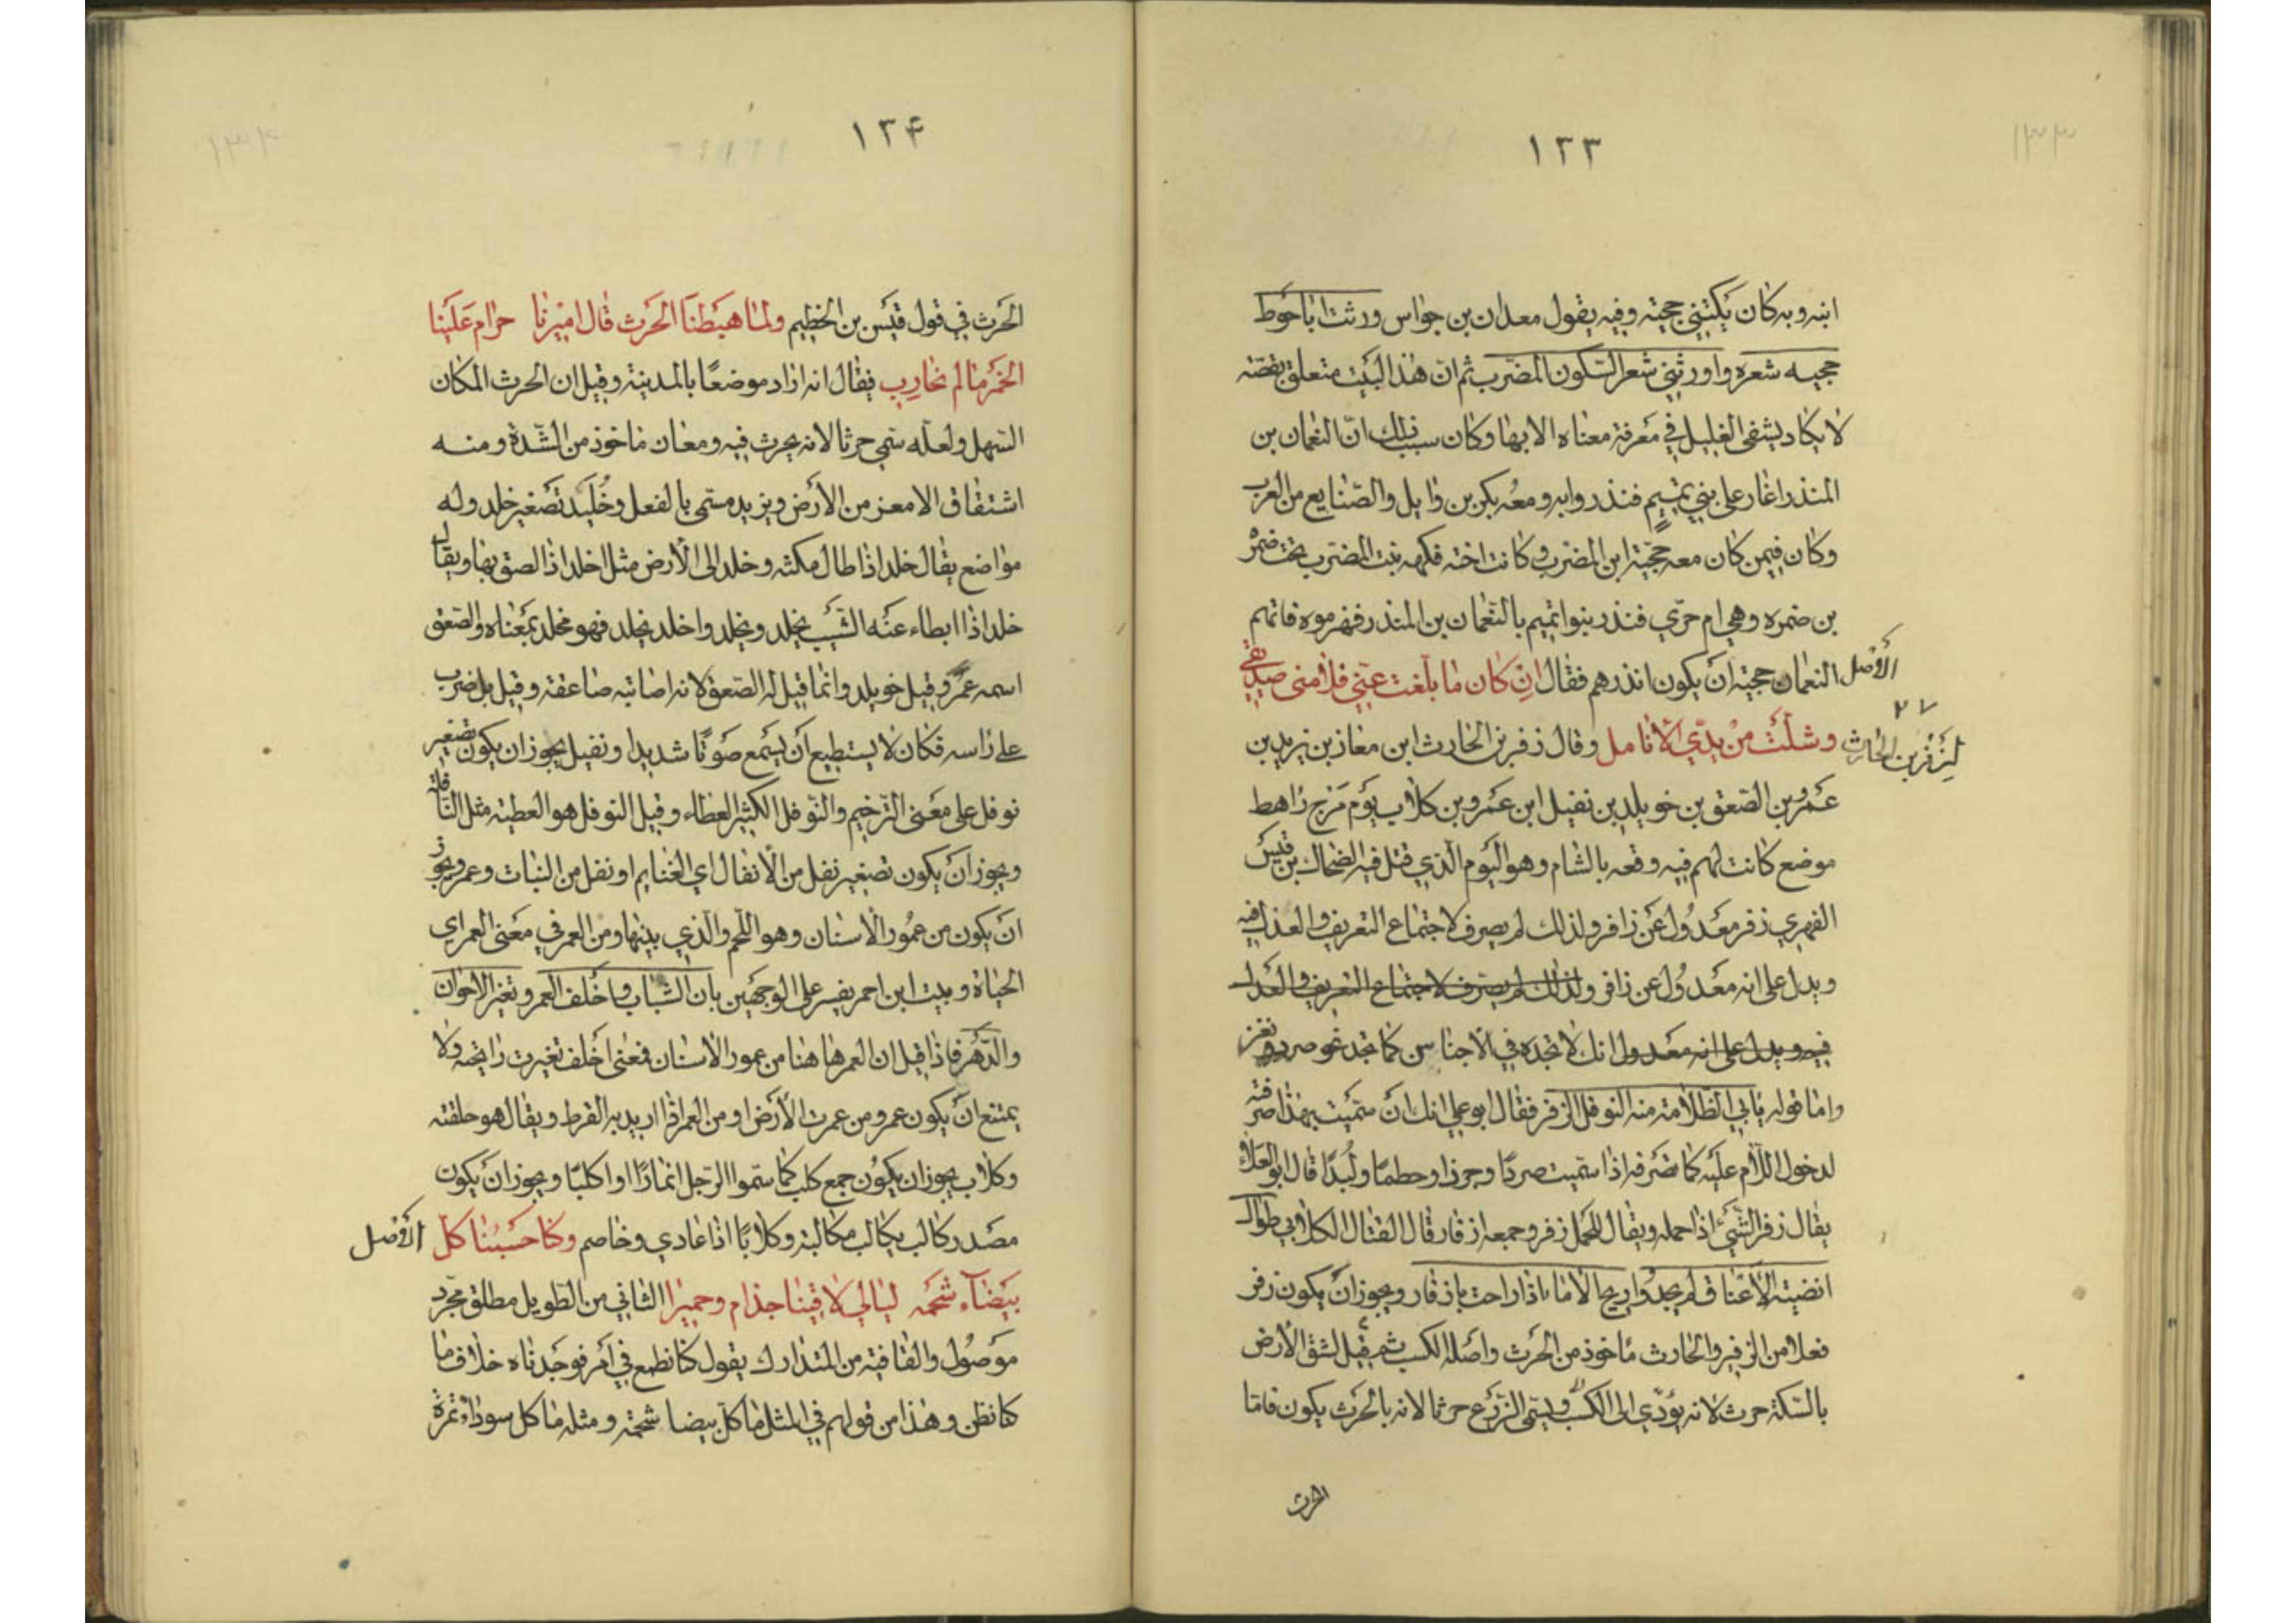 ١٣٣
١٣٣
ابنه وبه كان يكتني حجيّه وفيه يقول معدان بن جواس ورثت ابا حوط
حجيه شعره واورثني شعر السكون المضرب ثم ان هذا البيت متعلق بقصة
لا يكاد يشفى الغليل في معرفة معناه الا بها وكان سبب ذلك انّ النعمان بن
المنذر اغار على بني تميم فنذروا به ومعه بكر بن وايل والصنايع من العرب
وكان فيمن كان معه حجيّة ابن المضرب وكانت اخته فكهه بنت المضرب تحت ضمرة
بن ضمره وهي ام حرّي فنذر بنوا تميم بالنعمان بن المنذر فهزموه فاتهم
الأصل النعمان حجيه ان يكون انذرهم فقال ان كان ما بلّغت عنّي فلامنى صديقي
٢٧
لزفر بن الحارث وشلّت من يديّ الأنامل وقال زفر بن الحارث ابن معاز بن يزيد بن
عمرو بن الصّعق بن خويلد بن نفيل ابن عمرو بن كلاب يوم مرج راهط
موضع كانت لهم فيه وقعه بالشام وهو اليوم الّذي قتل فيه الضحاك بن قيس
الفهري زفر معدول عن زافر ولذلك لم يصرف لاجتماع التعريف والعدل فيه
ويدل على انه معدول عن زافر ولذلك لم يصرف لاجتماع التعريف والعدل
فيه ويدل على انه معدول انك لا تجده في الاجناس كما تجد نحو صرد ونغز
واما قوله يابي الظلامة منه النوفل الزفر فقال ابو علي انك ان سمّيت بهذا صرفته
لدخول اللّام عليه كما تصرفه اذا سمّيت صردًا وجرذا وحطمًا ولُبدًا قال ابو العلاء
يقال زفر الشّيء اذا حمله ويقال للحمل زفر وجمعه ازفار قال القتال الكلابي طوال
انضية الأعناق لم يجدوا ريح الاماء اذا راحت بازفار ويجوز ان يكون زفر
فعلا من الزفير والحارث ماخوذ من الحرث واصله الكسب ثم قيل لشق الأرض
بالسّكة حرث لانه يؤدّي الى الكسب ويسمّى الزّرع حرثا لانه بالحرث يكون فامّا
الحرث
١٣۴
١٣۴
الحرث في قول قيس بن الخطيم ولمّا هبطنا الحرث قال اميرنا حرام علينا
الخمر ما لم نحارب فقال انه اراد موضعًا بالمدينة وقيل ان الحرث المكان
السّهل ولعلّه سمّي حرثا لانه يحرث فيه ومعان ماخوذ من الشّدة ومنه
اشتقاق الامعز من الأرض ويزيد مسمّى بالفعل وخُليد تصغير خلد وله
مواضع يقال خلد اذا طال مكثه وخلد الى الأرض مثل اخلد اذا لصق بها ويقال
خلد اذا ابطاء عنه الشّيب يخلد ويخلد واخلد يخلد فهو مخلد بمعناه والصّعق
اسمه عمرو وقيل خويلد وانما قيل له الصّعق لانه اصابته صاعقة وقيل بل ضرب
على راسه فكان لا يستطيع ان يسمع صوتًا شديدا ونفيل يجوز ان يكون تصغير
نوفل على معنى التّرخيم والنّوفل الكثير العطاء وقيل النوفل هو العطية مثل النّافلة
ويجوز ان يكون تصغير نفل من الأنفال اي الغنايم او نفل من النبات وعمرو يجوز
ان يكون من عمُور الأسنان وهو اللّحم والّذي بينها ومن العمر في معنى العمر اي
الحياة وبيت ابن احمر يفسر على الوجهين بان الشّباب واخلف العمر وتغير الاخوان
والدّهر فاذا قيل ان العمر هاهنا من عمور الأسنان فمعنى اخلف تغيرت رائحته ولا
يمتنع ان يكون عمرو من عمرت الأرض او من العمر اذا اريد به القرط ويقال هو حلقته
وكلاب يجوز ان يكون جمع كلب كما سمّوا الرّجل انمارًا او اكلبًا ويجوز ان يكون
مصدر كالب يكالب مكالبة وكلابًا اذا عادي وخاصم وكنّا حسبنا كلّ الأصل
بيضاء شحمه ليالي لاقينا جذام وحميرا الثاني من الطّويل مطلق مجرّد
موصُول والقافية من المتدارك يقول كنا نطمع في امر فوجدناه خلاف ما
كنا نظن وهذا من قولهم في المثل ما كلّ بيضا شحمة ومثله ما كل سوداء تمرة